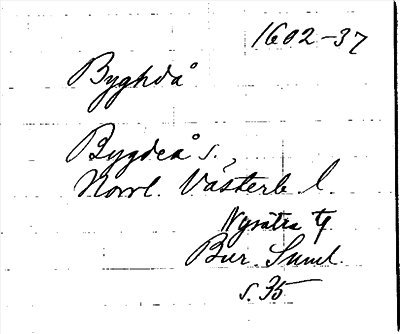 1602-37
Byghdå
Bygdeå s.,
Norrl. Västerb. l.
Nysätra tg.
Bur. Suml.
s. 35